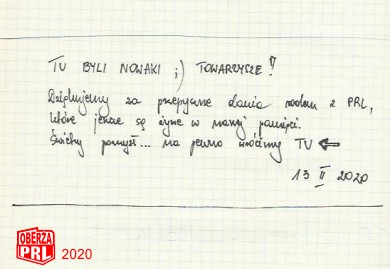 TU BYLI NOWAKI ;) TOWARZYSZE!!
Dziękujemy za przepyszne dania rodem z PRL,
które jeszcze są żywe w naszej pamięci.
Świetny pomysł... na pewno wrócimy TU ⇐
13 II 2020
OBERŻA
PRL
2020